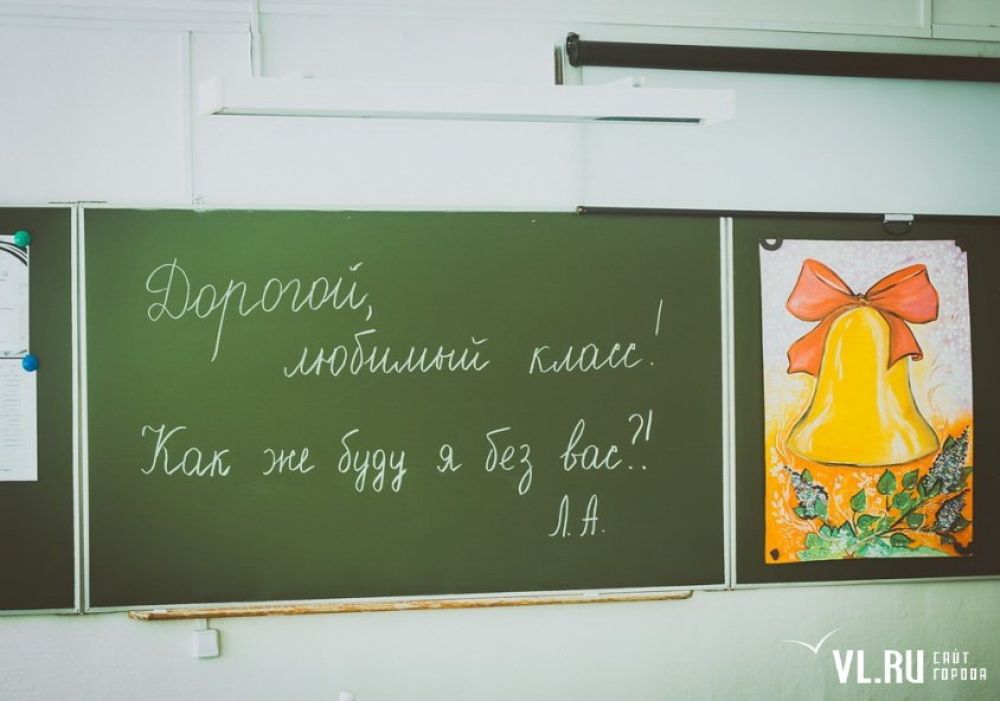 Дорогой,
любимый класс!
Как же буду я без вас?!
Л.А.
VL.RU САЙТ
ГОРОДА